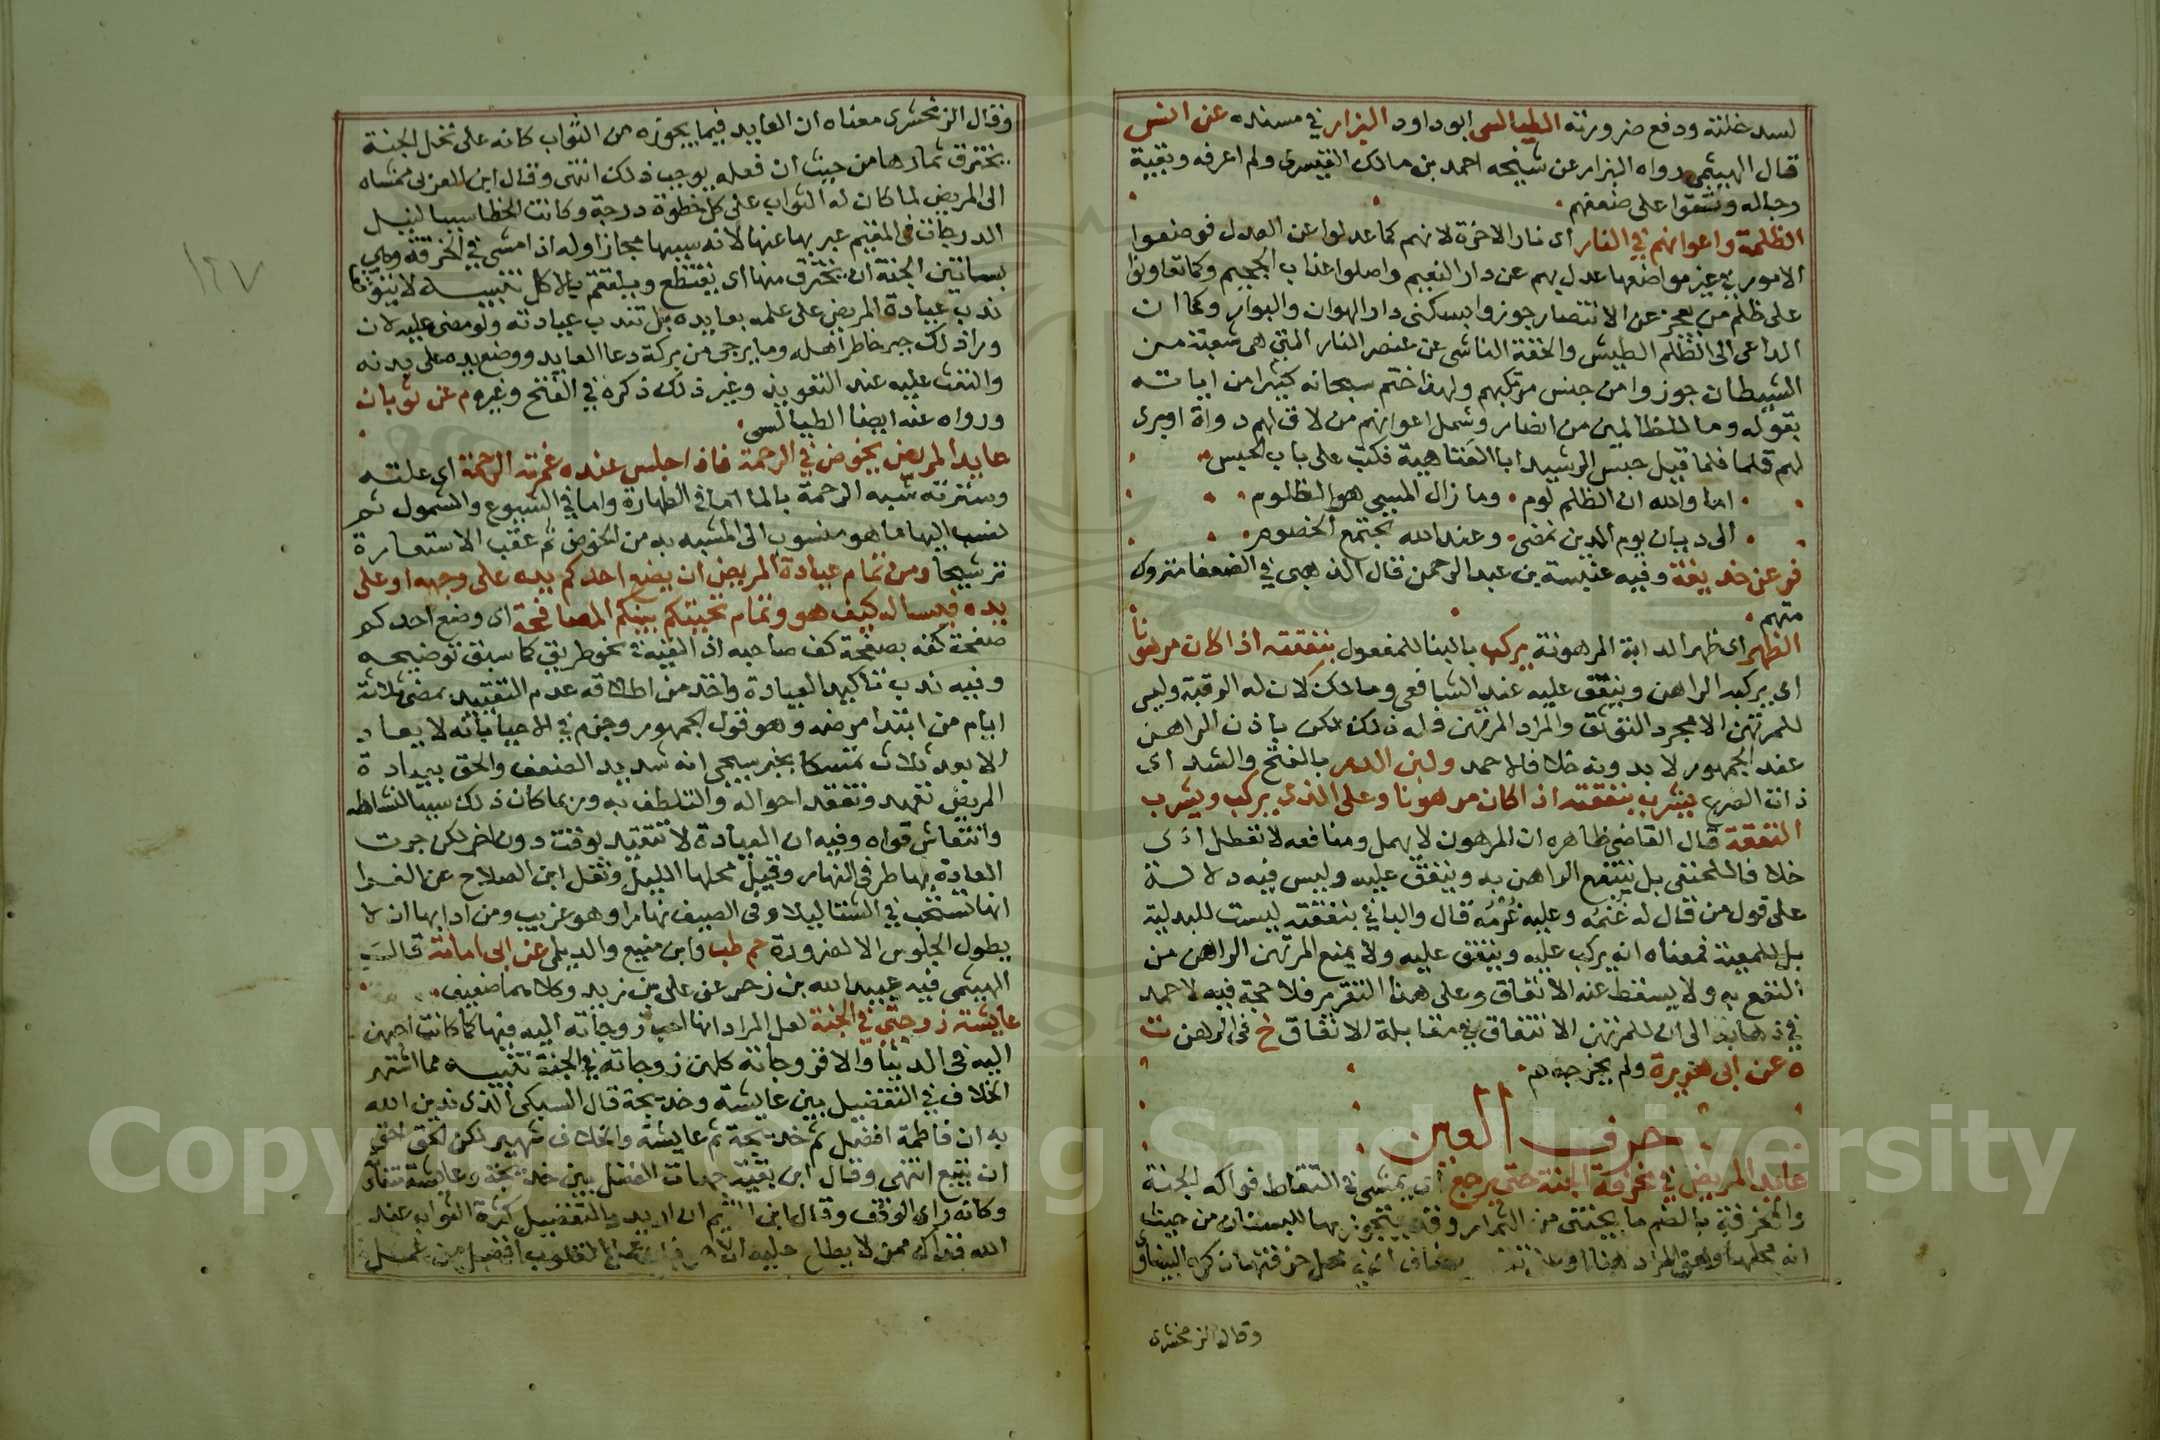 لسد خلته ودفع ضرورته الطيالسى ابو داود البزار في مسنده عن انس
قال الهيثمى رواه البزار عن شيخه احمد بن مالك القيسرى ولم اعرفه وبقية
رجاله وثقوا على ضعفهم
الظلمة واعوانهم في النار اى نار الاخرة لانهم كما عدلوا عن العدل فوضعوا
الامور في غير مواضعها عدل بهم عن دار النعيم واصلوا عذاب الجحيم وكما تعاونوا
على ظلم من يعجز عن الانتصار جوزوا بسكنى دار الهوان والبوار وكما ان
الداعى الى الظلم الطيش والخفة الناشى عن عنصر النار التى هى شعبة من
الشيطان جوزوا من جنس مرتكبهم ولهذا ختم سبحانه كثيرا من اياته
بقوله وما للظالمين من انصار وشمل اعوانهم من لاق لهم دواة او برى
لهم قلما فلما قيل حبس الرشيد ابا العتاهية فكتب على باب الحبس
اما والله ان الظلم لوم وما زال المسيى هو الظلوم
الى ديان يوم الدين نمضى وعند الله تجتمع الخصوم
فر عن حذيفة وفيه عنبسة بن عبد الرحمن قال الذهبى في الضعفا متروك
متهم
الظهر اى ظهر الدابة المرهونة يركب بالبنا للمفعول بنفقته اذا كان مرهونا
اى يركبه الراهن وينفق عليه عند الشافعى ومالك لان له الرقبة وليس
للمرتهن الا مجرد التوثق والمراد المرتهن فله ذلك لكن باذن الراهن
عند الجمهور لا بدونه خلافا لاحمد ولبن الدر بالفتح والشد اى
ذات الضرع يشرب بنفقته اذا كان مرهونا وعلى الذى يركب ويشرب
النفقة قال القاضى ظاهره ان المرهون لا يهمل ومنافعه لا تعطل اى
خلافا للحنفى بل ينتفع الراهن به وينفق عليه وليس فيه دلالة
على قول من قال له غنمه وعليه غرمه قال والبا في بنفقته ليست للبدلية
بل للمعية فمعناه انه يركب عليه وينفق عليه ولا يمنع المرتهن الراهن من
النفع به ولا يسقط عنه الانفاق وعلى هذا التقرير فلا حجة فيه لاحمد
في ذهابه الى ان للمرتهن الانتفاق في مقابلة الانفاق خ فى الرهن ت
ه عن ابى هريرة ولم يخرجه م
حرف العين
عايد المريض في مخرفة الجنة حتى يرجع اى يمشى في التقاط فواكه الجنة
والخرفة بالضم ما يجتنى من الثمار وقد يتجوز بها للبستان من حيث
انه محلها وهو المراد هنا او على مضاف اى في محل خرفتها ذكره البيضاوى
وقال الزمخشرى
وقال الزمخشرى معناه ان العايد فيما يحوزه من الثواب كانه على نخل الجنة
يخترق ثمارها من حيث ان فعله يوجب ذلك انتهى وقال ابن العربى ممشاه
الى المريض لما كان له الثواب على كل خطوة درجة وكانت الخطا سببا لنيل
الدرجات فى المقيم عبر بها عنها لانه سببها مجازا وله اذا مشى في الخرفة وهى
بساتين الجنة ان يخترق منها اى يقتطع ويتلقم بالاكل تنبيه لا يتوقف
ندب عيادة المريض على علمه بعايده بل تندب عيادته ولو مغمى عليه لان
ورا ذلك جبر خاطر اهله وما يرجى من بركة دعا العايد ووضع يده على بدنه
والنفث عليه عند التعويذ وغير ذلك ذكره في الفتح وغيره م عن ثوبان
ورواه عنه ايضا الطيالسى
عايد المريض يخوض في الرحمة فاذا جلس عنده غمرته الرحمة اى علته
وسترته شبه الرحمة بالما اما في الطهارة واما في الشيوع والشمول ثم
نسب اليها ما هو منسوب الى المشبه به من الخوض ثم عقب الاستعارة
ترشيحا ومن تمام عيادة المريض ان يضع احدكم يده على وجهه او على
يده فيساله كيف هو وتمام تحيتكم بينكم المصافحة اى وضع احدكم
صفحة كفه بصفحة كف صاحبه اذا لقيه في نحو طريق كما سبق توضيحه
وفيه ندب تاكيد العيادة واخذ من اطلاقه عدم التقييد بمضى ثلاثة
ايام من ابتدا مرضه وهو قول الجمهور وجزم في الاحيا بانه لا يعاد
الا بعد ثلاث تمسكا بخبر سيجى انه شديد الضعف والحق بعيادة
المريض تعهده وتفقد احواله والتلطف به وربما كان ذلك سببا لنشاطه
وانتعاش قواه وفيه ان العيادة لا تتقيد بوقت دون اخر لكن جرت
العادة بها طرفى النهار وقيل محلها الليل ونقل ابن الصلاح عن الفرا
انها تستحب في الشتا ليلا وفى الصيف نهارا وهو غريب ومن ادابها ان لا
يطول الجلوس الا لضرورة حم طب وابن منيع والديلمى عن ابى امامة قال
الهيثمى فيه عبيد الله بن زحر عن على بن يزيد وكلاهما ضعيف
عايشة زوجتى في الجنة لعل المراد انها احب زوجاته اليه فيها كما كانت احبهن
اليه فى الدنيا والا فزوجاته كلهن زوجاته في الجنة تنبيه مما اشتهر
الخلاف في التفضيل بين عايشة وخديجة قال السبكى الذى ندين الله
به ان فاطمة افضل ثم خديجة ثم عايشة والخلاف شهير لكن الحق احق
ان يتبع انتهى وقال ابن تيمية جهات الفضل بين خديجة وعايشة متقاربة
وكانه راى الوقف وقال ابن القيم ان اريد بالتفضيل كثرة الثواب عند
الله فذاك ممن لا يطلع عليه الا هو فان عمل القلوب افضل من عمل
١٢٧
Copyright © King Saud University